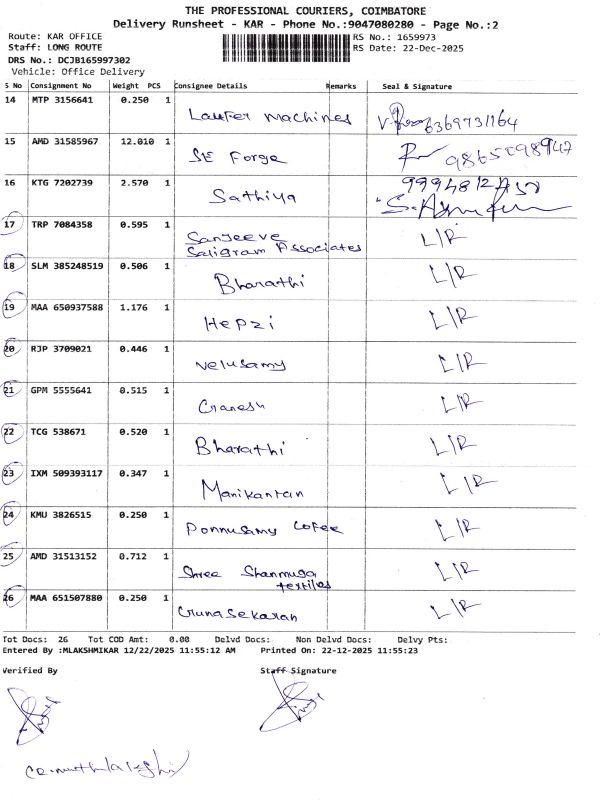 THE PROFESSIONAL COURIERS, COIMBATORE
Delivery Runsheet - KAR - Phone No.:9047080280 - Page No.:2
Route: KAR OFFICE RS No.: 1659973
Staff: LONG ROUTE RS Date: 22-Dec-2025
DRS No.: DCJB165997302
Vehicle: Office Delivery
S No Consignment No Weight PCS Consignee Details Remarks Seal & Signature
14 MTP 3156641 0.250 1 Laufer Machines 6369731164
15 AMD 31585967 12.010 1 SE Forge
16 KTG 7202739 2.570 1 Sathiya
17 TRP 7084358 0.595 1 Sanjeeve L/R
Saligram Associates
18 SLM 385248519 0.506 1 Bharathi L/R
19 MAA 650937588 1.176 1 Hepzi L/R
20 RJP 3709021 0.446 1 Velusamy L/R
21 GPM 5555641 0.515 1 Ganesh L/R
22 TCG 538671 0.520 1 Bharathi L/R
23 IXM 509393117 0.347 1 Manikantan L/R
24 KMU 3826515 0.250 1 Ponnusamy Cofee L/R
25 AMD 31513152 0.712 1 Shree Shanmuga L/R
textiles
26 MAA 651507880 0.250 1 Gunasekaran L/R
Tot Docs: 26 Tot COD Amt: 0.00 Delvd Docs: Non Delvd Docs: Delvy Pts:
Entered By :MLAKSHMIKAR 12/22/2025 11:55:12 AM Printed On: 22-12-2025 11:55:23
Verified By Staff Signature